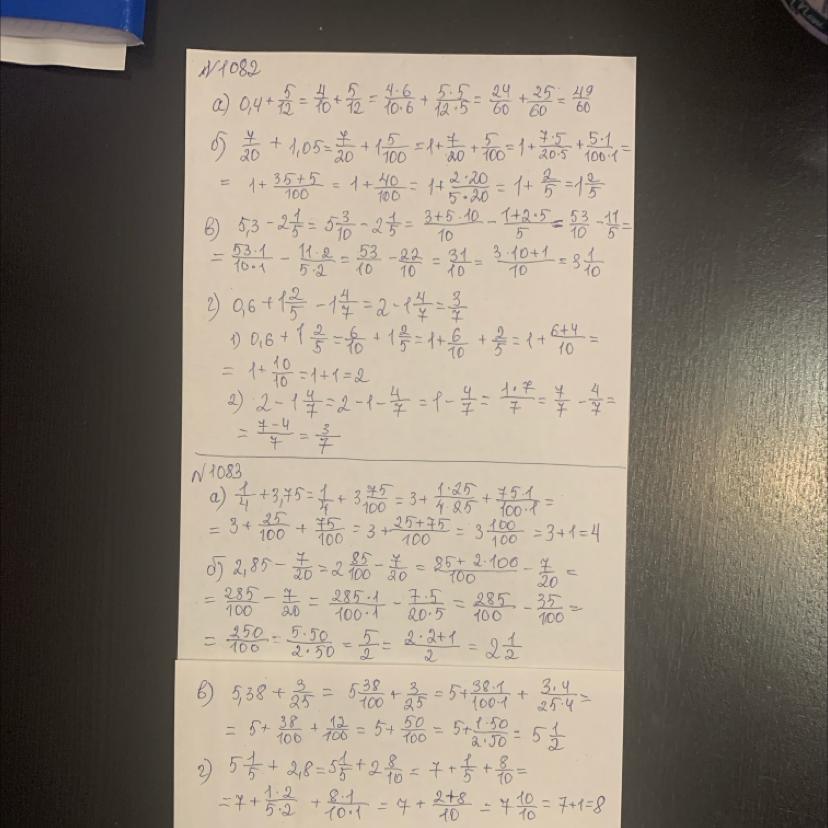 №1082
а) 0,4 + 5/12 = 4/10 + 5/12 = 4·6/10·6 + 5·5/12·5 = 24/60 + 25/60 = 49/60
б) 7/20 + 1,05 = 7/20 + 1 5/100 = 1 + 7/20 + 5/100 = 1 + 7·5/20·5 + 5·1/100·1 =
= 1 + 35+5/100 = 1 + 40/100 = 1 + 2·20/5·20 = 1 + 2/5 = 1 2/5
в) 5,3 - 2 1/5 = 5 3/10 - 2 1/5 = 3+5·10/10 - 1+2·5/5 = 53/10 - 11/5 =
= 53·1/10·1 - 11·2/5·2 = 53/10 - 22/10 = 31/10 = 3·10+1/10 = 3 1/10
г) 0,6 + 1 2/5 - 1 4/7 = 2 - 1 4/7 = 3/7
1) 0,6 + 1 2/5 = 6/10 + 1 2/5 = 1 + 6/10 + 2/5 = 1 + 6+4/10 =
= 1 + 10/10 = 1 + 1 = 2
2) 2 - 1 4/7 = 2 - 1 - 4/7 = 1 - 4/7 = 1·7/7 = 7/7 - 4/7 =
= 7-4/7 = 3/7
№1083
а) 1/4 + 3,75 = 1/4 + 3 75/100 = 3 + 1·25/4·25 + 75·1/100·1 =
= 3 + 25/100 + 75/100 = 3 + 25+75/100 = 3 100/100 = 3+1=4
б) 2,85 - 7/20 = 2 85/100 - 7/20 = 85+2·100/100 - 7/20 =
= 285/100 - 7/20 = 285·1/100·1 - 7·5/20·5 = 285/100 - 35/100 =
= 250/100 = 5·50/2·50 = 5/2 = 2·2+1/2 = 2 1/2
в) 5,38 + 3/25 = 5 38/100 + 3/25 = 5 + 38·1/100·1 + 3·4/25·4 =
= 5 + 38/100 + 12/100 = 5 + 50/100 = 5 + 1·50/2·50 = 5 1/2
г) 5 1/5 + 2,8 = 5 1/5 + 2 8/10 = 7 + 1/5 + 8/10 =
= 7 + 1·2/5·2 + 8·1/10·1 = 7 + 2+8/10 = 7 10/10 = 7+1=8